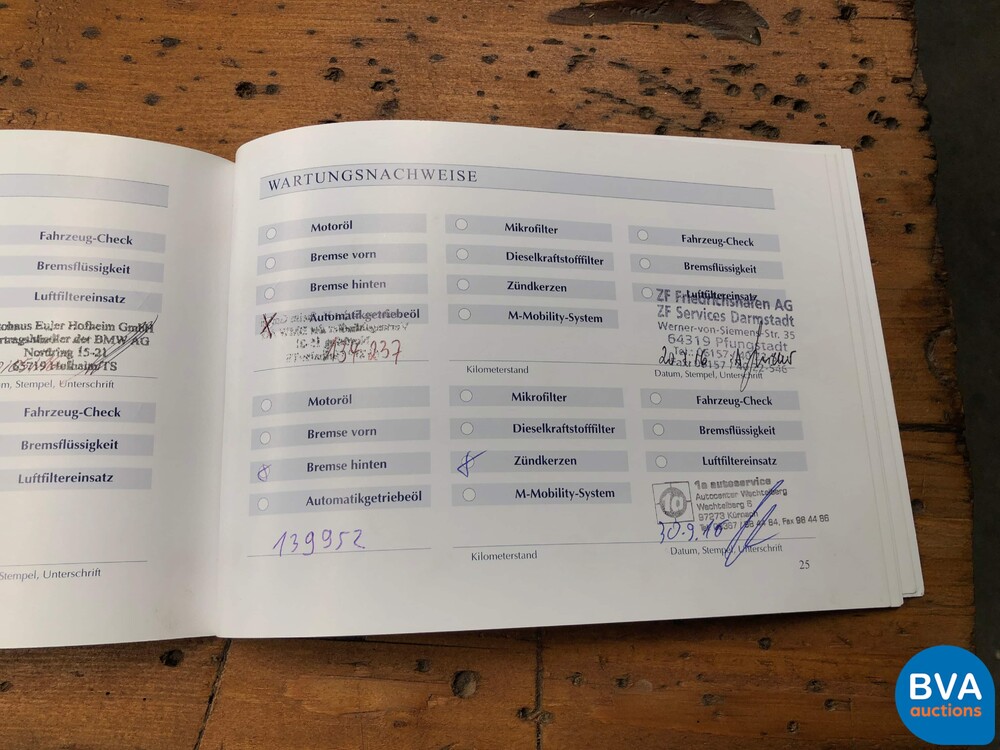 Fahrzeug-Check
Bremsflüssigkeit
Luftfiltereinsatz
Euler Hofheim GmbH
der BMW AG
Nordring 15-21
65719 Hofheim/TS
Stempel, Unterschrift
Fahrzeug-Check
Bremsflüssigkeit
Luftfiltereinsatz
Stempel, Unterschrift
WARTUNGSNACHWEISE
Motoröl
Bremse vorn
Bremse hinten
Automatikgetriebeöl
134.237
Mikrofilter
Dieselkraftstofffilter
Zündkerzen
M-Mobility-System
Kilometerstand
Fahrzeug-Check
Bremsflüssigkeit
Luftfiltereinsatz
ZF Friedrichshafen AG
ZF Services Darmstadt
Werner-von-Siemens-Str. 35
64319 Pfungstadt
Datum, Stempel, Unterschrift
Motoröl
Bremse vorn
Bremse hinten
Automatikgetriebeöl
139952
Mikrofilter
Dieselkraftstofffilter
Zündkerzen
M-Mobility-System
Kilometerstand
Fahrzeug-Check
Bremsflüssigkeit
Luftfiltereinsatz
1a autoservice
Autocenter Wachtelberg
Wachtelberg 6
97273 Kürnach
Fax 98 44 86
30.9.16
Datum, Stempel, Unterschrift
25
BVA
auctions